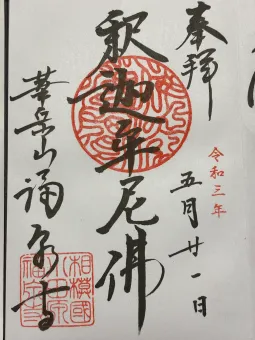 奉拝
令和三年
五月廿一日
釈迦牟尼佛
華岳山福泉寺
相模國